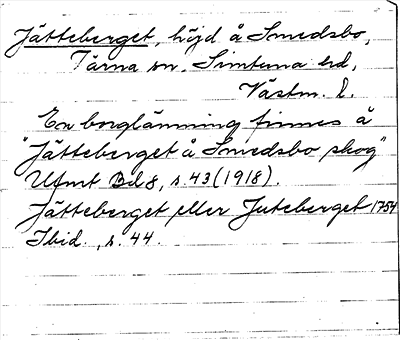 Jätteberget, höjd å Smedsbo,
Tärna sn. Simtuna hd,
Västm. l.
En borglämning finnes å
"Jätteberget å Smedsbo skog"
Ufmt Bd 8, s. 43 (1918).
Jätteberget eller Juteberget 1754
Ibid., s. 44.